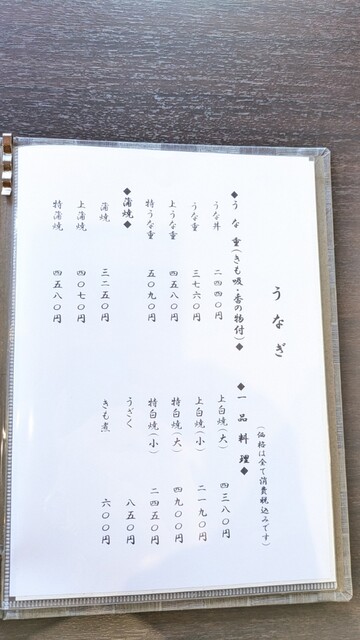 うなぎ
(価格は全て消費税込みです)
◆うな重(きも吸・香の物付)◆
うな丼 二四四〇円
うな重 三七六〇円
上うな重 四五八〇円
特うな重 五〇九〇円
◆蒲焼◆
蒲焼 三二五〇円
上蒲焼 四〇七〇円
特蒲焼 四五八〇円
◆一品料理◆
上白焼(大) 四三八〇円
上白焼(小) 二一九〇円
特白焼(大) 四九〇〇円
特白焼(小) 二四五〇円
うざく 八五〇円
きも煮 六〇〇円